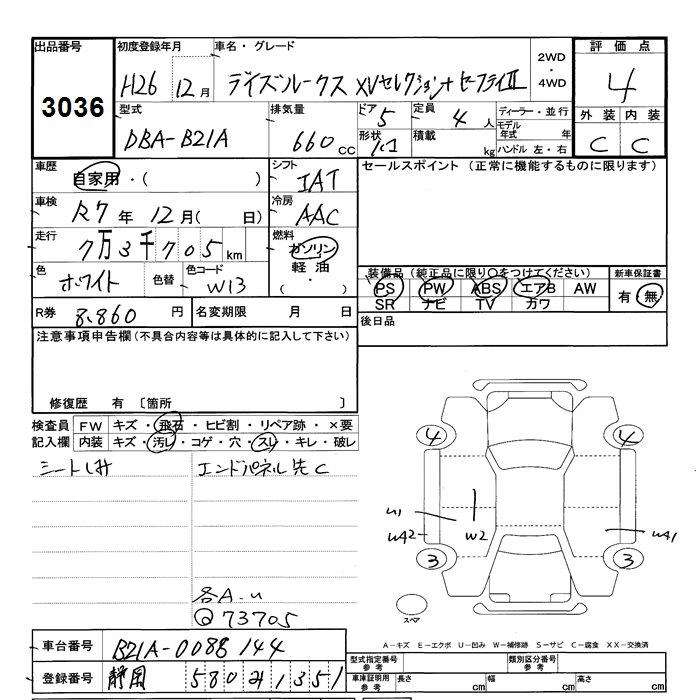 出品番号 初度登録年月 車名・グレード 2WD・4WD 評価点
3036 H26 12月 デイズルークス XVセレクション+セーフティII 4
型式 排気量 ドア 定員 ディーラー・並行 外装 内装
DBA-B21A 660cc 5 4人 モデル年式 年 C C
形状 積載 kg ハンドル 左・右
車歴 自家用・( ) シフト IAT セールスポイント (正常に機能するものに限ります)
車検 R7年 12月( 日) 冷房 AAC
走行 7万3千705km 燃料 ガソリン 軽油 ( ・ )
色 ホワイト 色替 色コード W13
装備品(純正品に限り○をつけてください) 新車保証書
PS PW ABS エアB AW 有・無
SR ナビ TV カワ
R券 8.860円 名変期限 月 日 後日品
注意事項申告欄(不具合内容等は具体的に記入して下さい)
修復歴 有 〔箇所 〕
検査員 FW キズ・飛石・ヒビ割・リペア跡・×要
記入欄 内装 キズ・汚レ・コゲ・穴・スレ・キレ・破レ
シートシミ エンドパネル先C
4 4
U1
UA2 W2 UA1
3 3
各A.U
Q73705
スペア
A-キズ E-エクボ U-凹み W-補修跡 S-サビ C-腐食 XX-交換済
車台番号 B21A-0088144
型式指定番号 参考 類別区分番号 参考
登録番号 静岡 580 1351
車庫証明用 参考 長さ cm 幅 cm 高さ cm